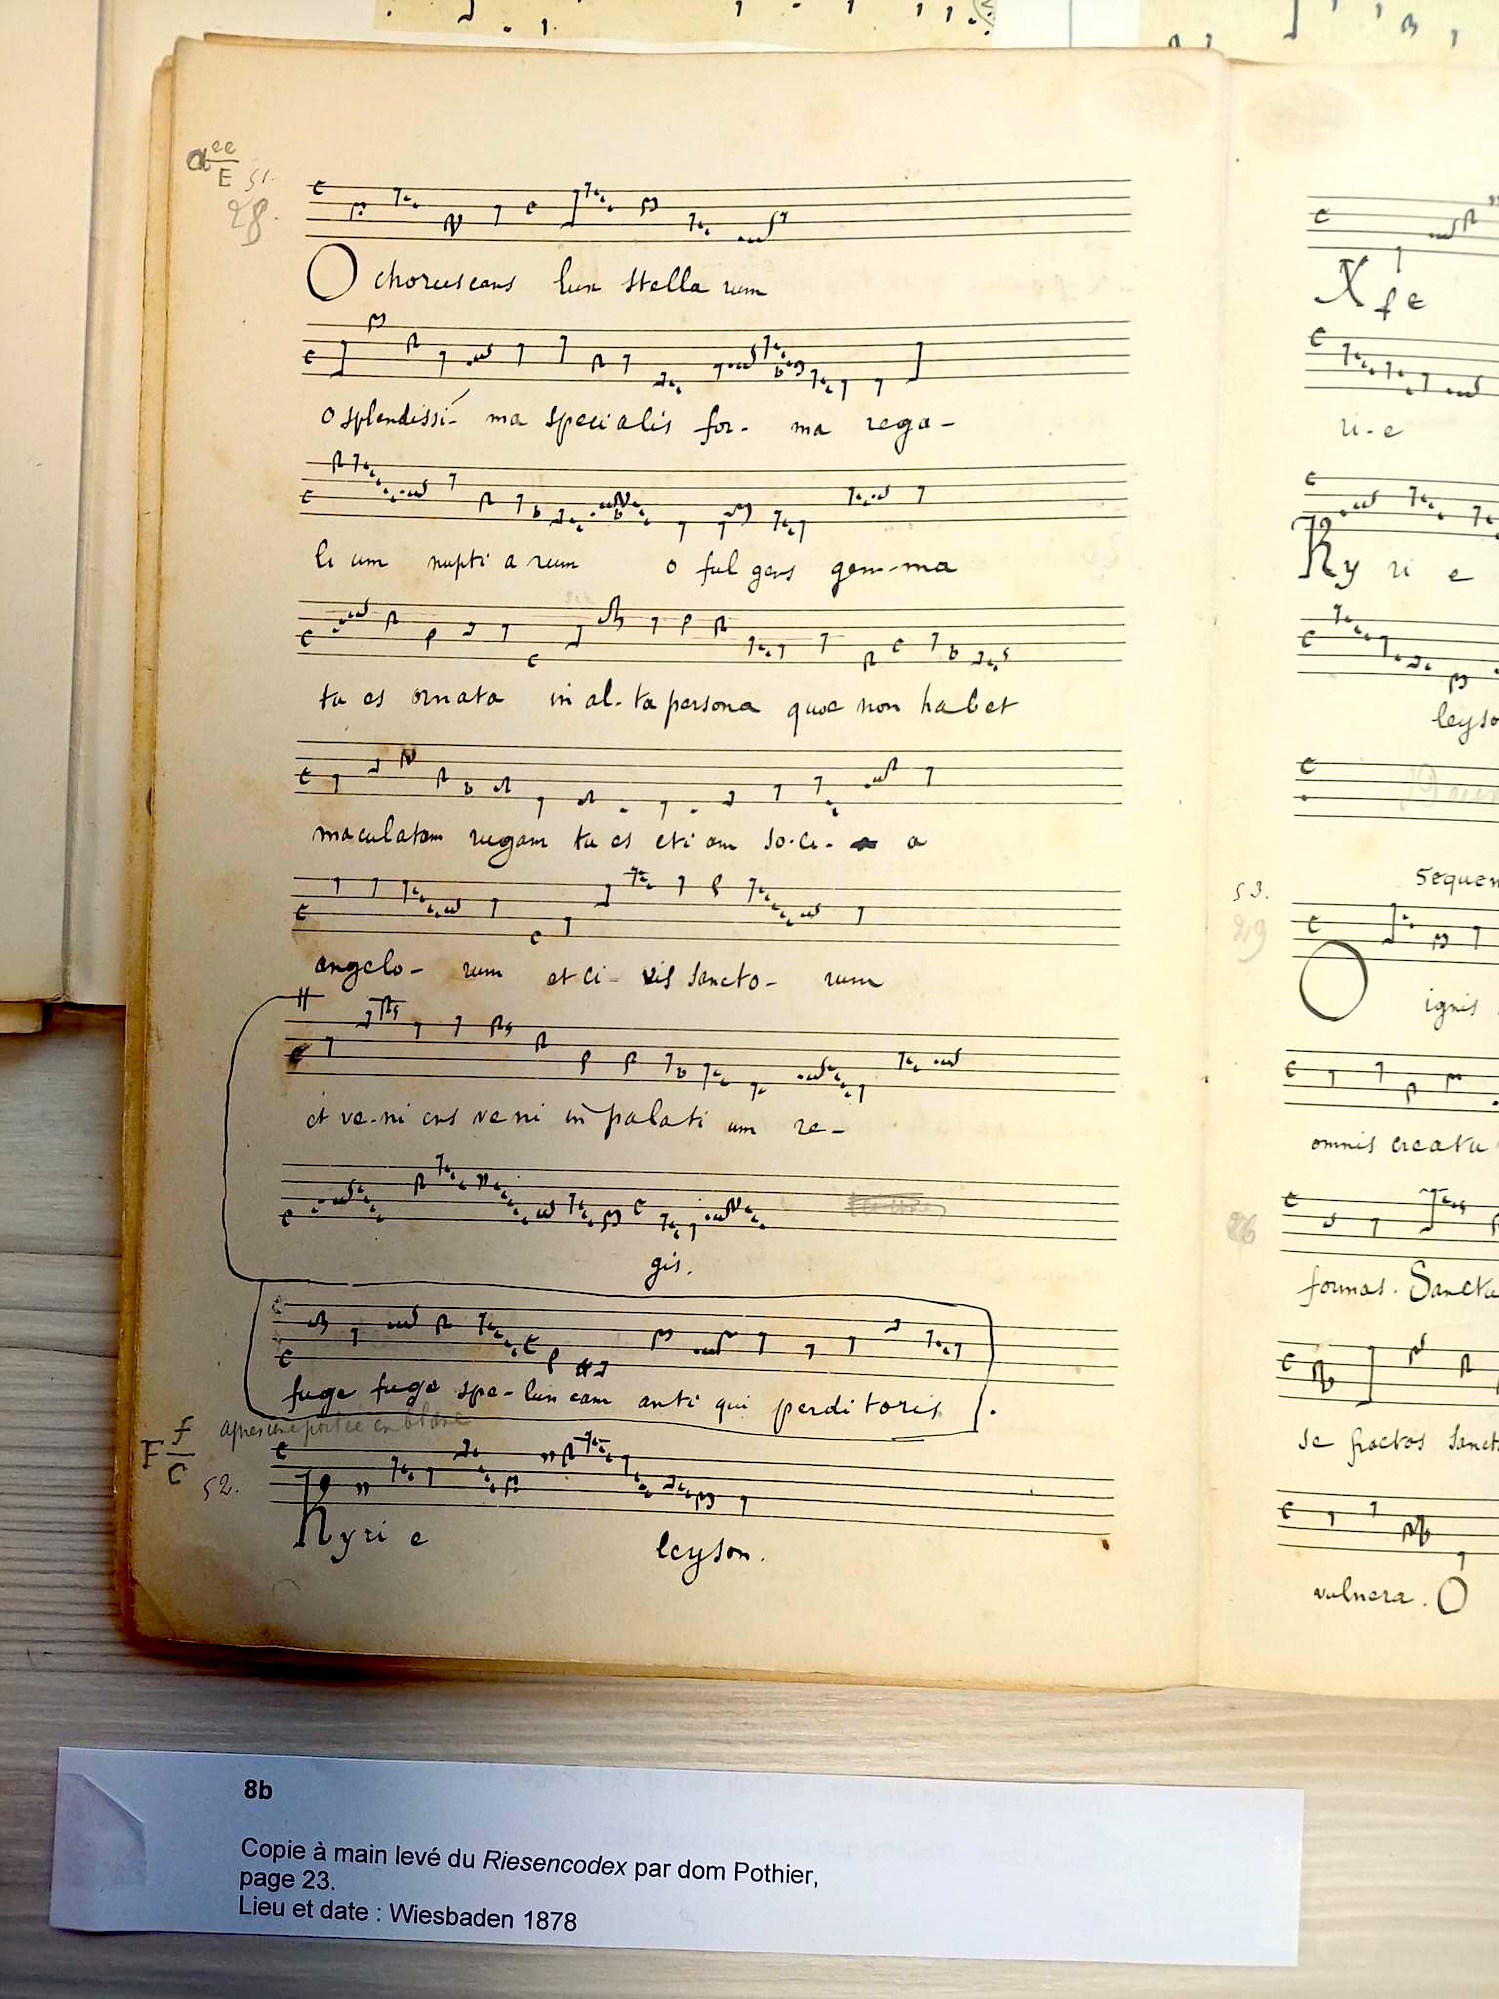 a ee
E 51.
28.
O choruscans lux stella rum
o splendissi- ma specialis for- ma rega-
li um nupti a rum o ful gens gem-ma
tu es ornata in al-ta persona quae non habet
maculatam rugam tu es eti am so-ci- a
angelo- rum et ci- vis sancto- rum
et ve-ni ens ve ni in palati um re-
gis.
fuge fuge spe-lun cam anti qui perditoris
F f
C 52.
après une portée en blanc
Kyri e leyson.
X fe
ri-e
Ky ri e
leyso
53.
Sequen
29
O ignis
omnis creatu
formas. Sanctu
se fractos sanct
vulnera. O
8b
Copie à main levé du Riesencodex par dom Pothier,
page 23.
Lieu et date : Wiesbaden 1878